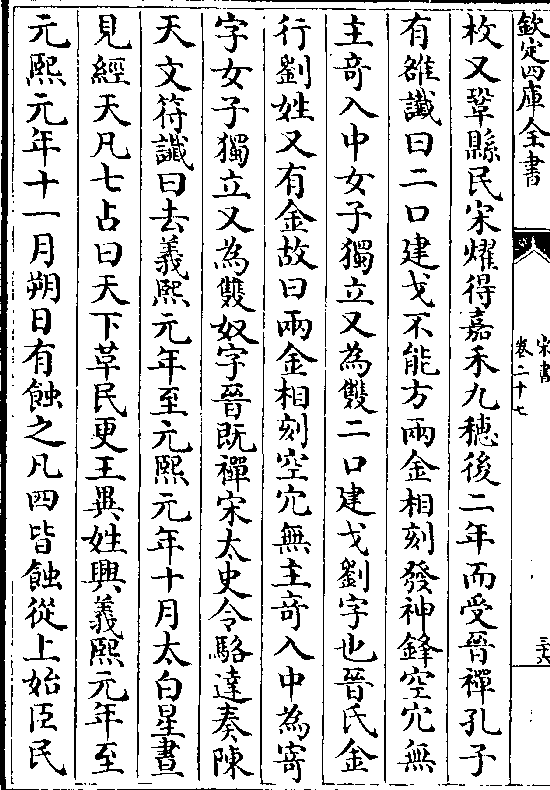 欽定四庫全書
宋書
卷二十七
三六
枚又鞏縣民宋燿得嘉禾九穗後二年而受晉禪孔子
有雒讖曰二口建戈不能方兩金相刻發神鋒空穴無
主奇入中女子獨立又為雙二口建戈劉字也晉氏金
行劉姓又有金故曰兩金相刻空穴無主奇入中為寄
字女子獨立又為雙奴字晉既禪宋太史令駱達奏陳
天文符讖曰去義熙元年至元熙元年十月太白星晝
見經天凡七占曰天下革民更王異姓興義熙元年至
元熙元年十一月朔日有蝕之凡四皆蝕從上始臣民